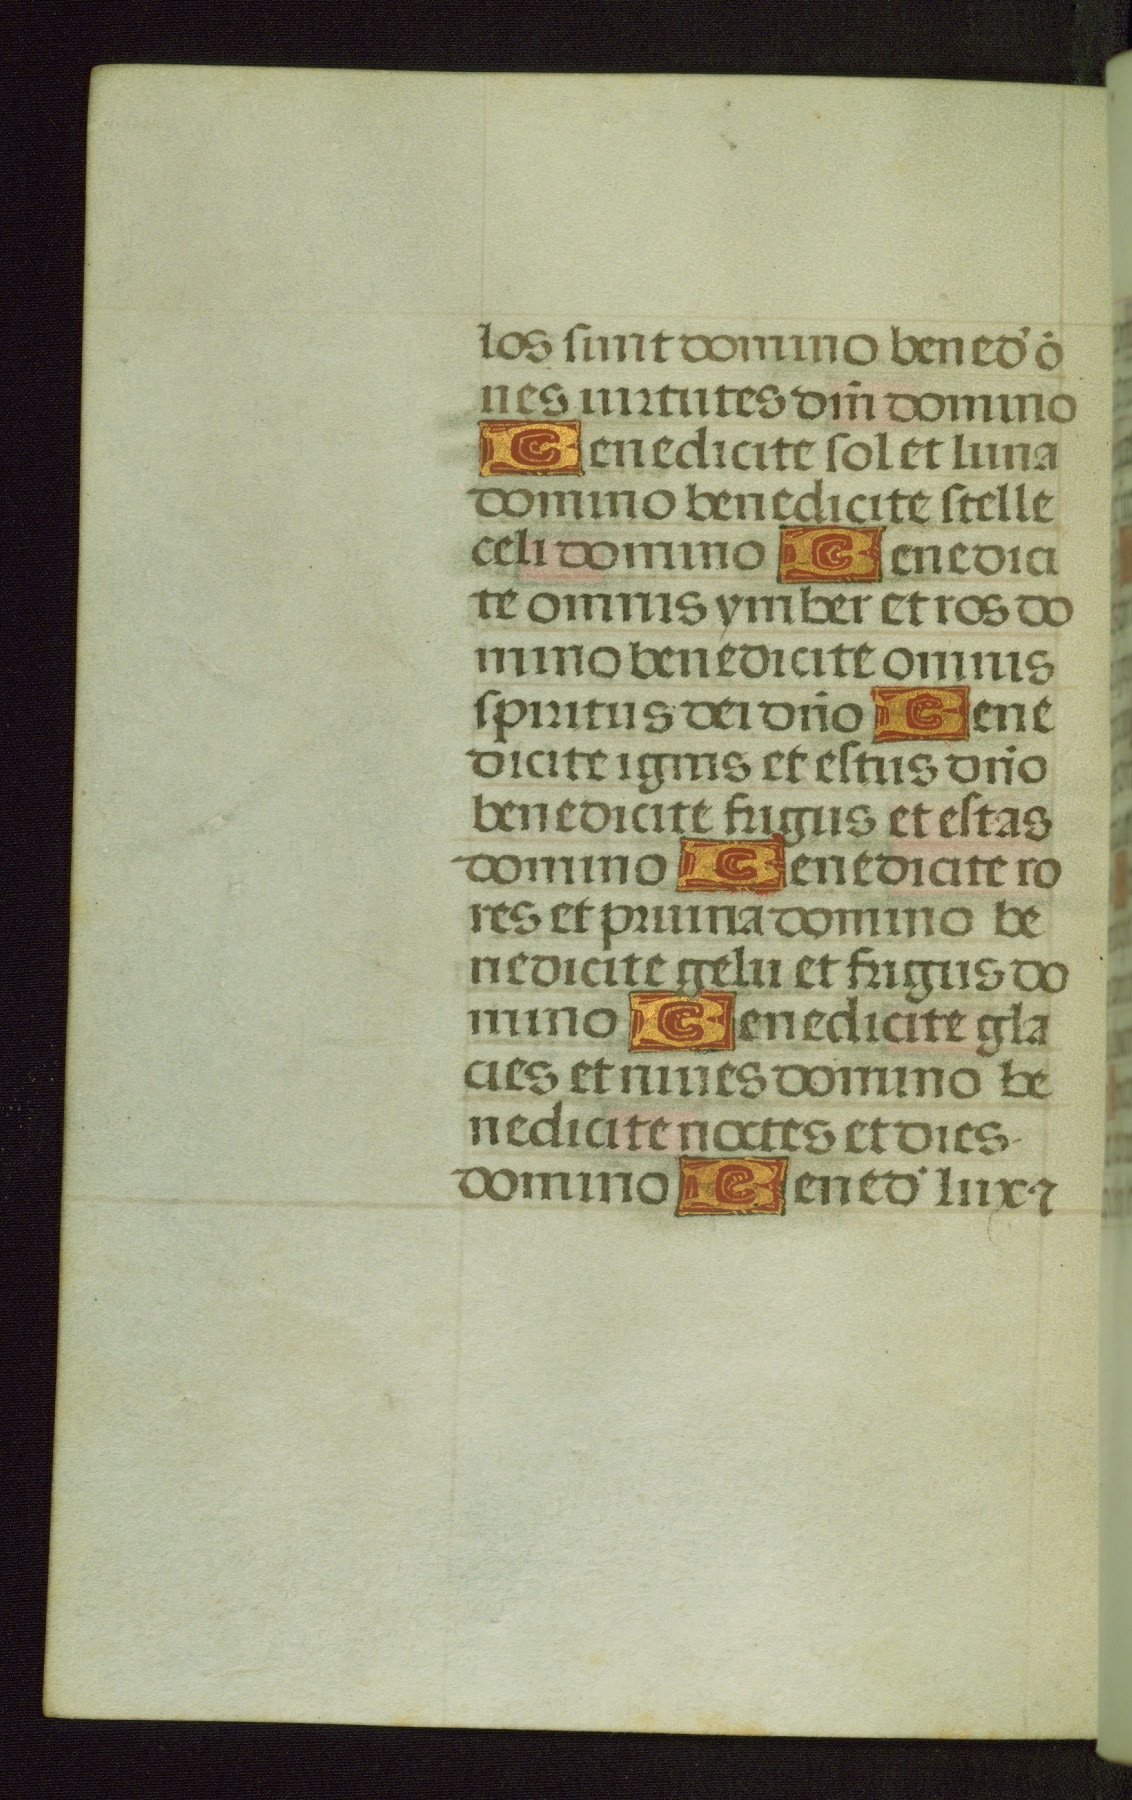 los sunt domino bened' o᷃
nes uirtutes dn̄i domino
Benedicite sol et luna
domino benedicite stelle
celi domino Benedici
te omnis ymber et ros do
mino benedicite omnis
spiritus dei dn̄o Bene
dicite ignis et estus dn̄o
benedicite frigus et estas
domino Benedicite ro
res et pruina domino be
nedicite gelu et frigus do
mino Benedicite gla
cies et niues domino be
nedicite noctes et dies
domino Bened' lux ⁊